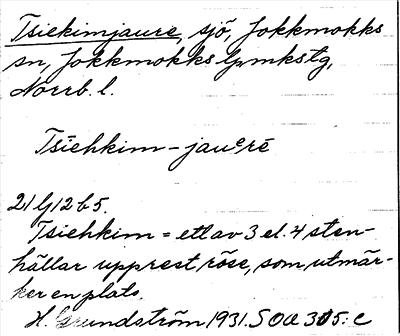 Tsiekimjaure, sjö, Jokkmokks
sn, Jokkmokks lpmkstg,
Norrb. l.
Tsiehkim-jauᵉrē
21 G 12 b 5.
Tsiehkim = ett av 3 el. 4 sten-
hällar upprest röse, som utmär-
ker en plats.
H. Grundström 1931. SOA 305: c